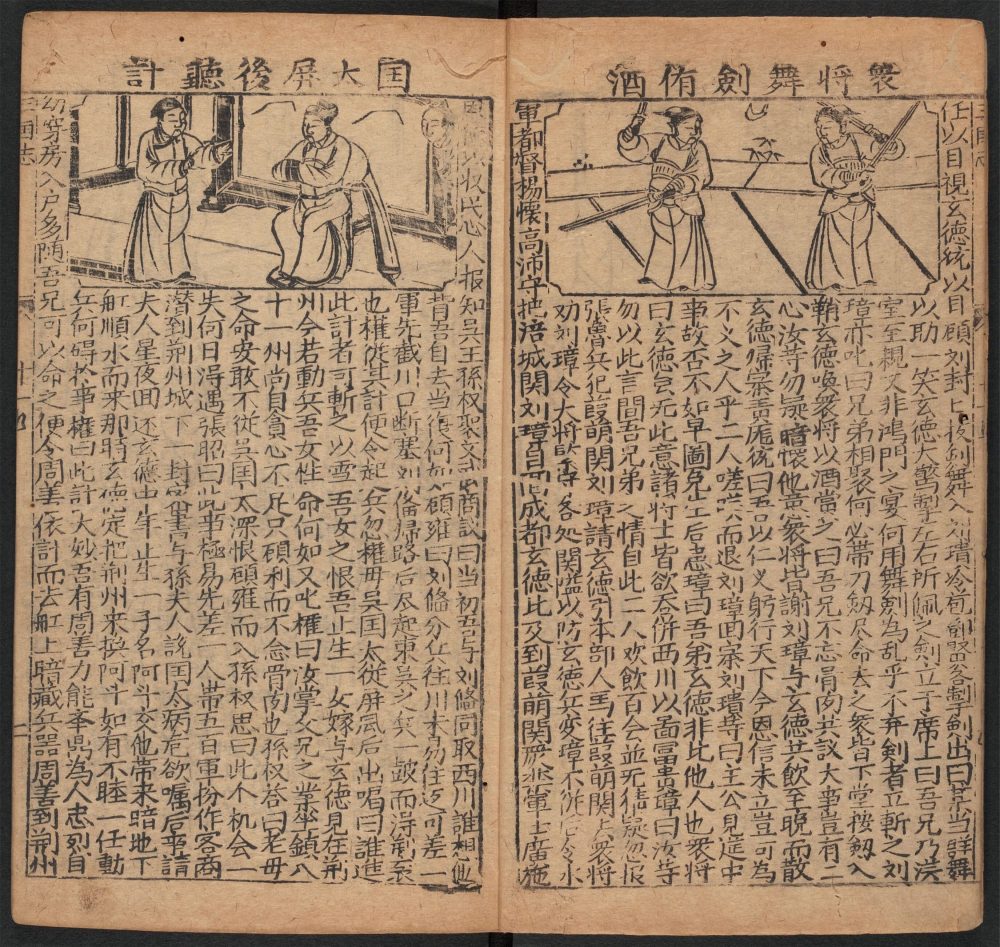 衆將舞劍侑酒
任以目視玄德統以目顧刘封上㧞剑舞入刘璝冷苞邓賢各掣剑出曰某当群舞
以助一笑玄德大驚掣左右所佩之剑立于席上曰吾兄乃洪
室至親又非鴻門之宴何用舞剑為乱乎不弃剣者立斬之刘
璋亦叱曰兄弟相聚何必帶刀剱尽命去之衆皆下堂按剱入
鞘玄德喚衆将以酒當之曰吾兄不忘骨肉共议大事豈有二
心汝等勿疑暗懷他意衆将皆謝刘璋与玄德共飲至晚而散
玄德歸寨责庞统曰吾以仁义躬行天下今恩信未立豈可為
不义之人乎二人嗟嘆而退刘璋囬寨刘璝等曰王公見筵中
事故否不如早圖免生后患璋曰吾弟玄德非比他人也衆将
曰玄德虽无此意諸將士皆欲吞併西川以啚冨貴璋曰汝等
勿以此言間吾兄弟之情自此二人欢飲百会並无猜疑忽报
張魯兵犯葭萌関刘璋請玄德引本部人馬往葭萌関去衆将
劝刘璋令大将守各処関隘以防玄德兵変璋不從后令水
軍都督楊懷高沛守把涪城関刘璋自回成都玄德比及到葭萌関嚴禁軍士廣施
囯太屏後聽計
以收民心人报知吴王孫权聚文武商议曰当初吾与刘俻同取西川誰想他
昔吾自去当復何如顧雍曰刘俻分兵往川未易往还可差一
軍先截川口断塞刘俻帰路后尽起東吴之兵一皷而淂荆襄
也权從其计便令起兵忽权毋吴囯太從屏風后出喝曰誰進
此计者可斬之以雪吾女之恨吾止生一女嫁与玄德見在荆
州今若動兵吾女性命何如又叱权曰汝掌父兄之業坐鎮八
十一州尚自貪心不足只顧利而不念骨肉也孫权答曰老毋
之命安敢不從吴囯太深恨顧雍而入孫权思曰此不机会一
失何日淂遇張昭曰此事極易先差一人帶五百軍扮作客商
潜到荊州城下一封宻書与孫夫人説囯太病危欲嘱后事請
夫人星夜囬还玄德中年止生一子名阿斗交他帶来暗地下
舡順水而来那時玄德定把荆州来換阿斗如有不睦一任動
兵何碍於事权曰此计大妙吾有周善力能舉鼎為人忠烈自
幼穿房入户多随吾兄可以命之便令周善依計而去舡上暗藏兵器周善到荊州
三囯志